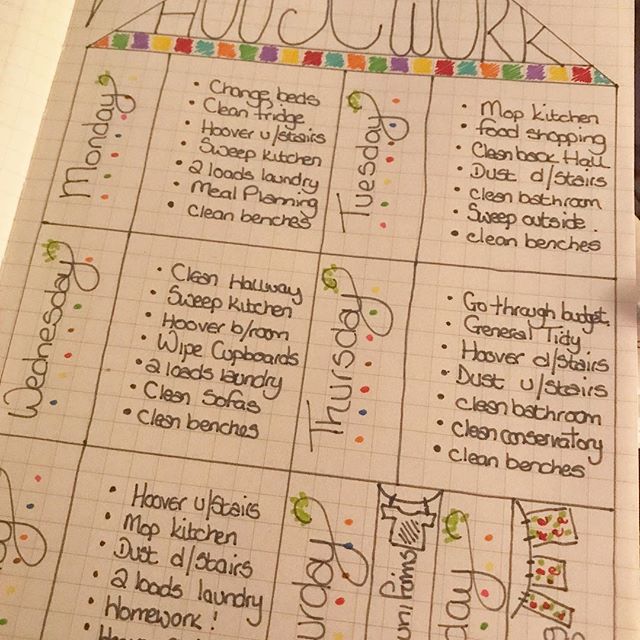 HOUSEWORK
Monday
• Change beds
• Clean fridge
• Hoover u/stairs
• Sweep kitchen
• 2 loads laundry
• Meal Planning
• Clean benches
Tuesday
• Mop kitchen
• food shopping
• Clean back Hall
• Dust d/stairs
• Clean bathroom
• Sweep outside.
• clean benches
Wednesday
• Clean Hallway
• Sweep kitchen
• Hoover b/room
• Wipe Cupboards
• 2 loads laundry
• Clean Sofas
• Clean benches
Thursday
• Go through budget
• General Tidy
• Hoover d/stairs
• Dust u/stairs
• Clean bathroom
• Clean conservatory
• Clean benches
• Hoover u/stairs
• Mop kitchen
• Dust d/stairs
• 2 loads laundry
• Homework!
urday
uniforms
day